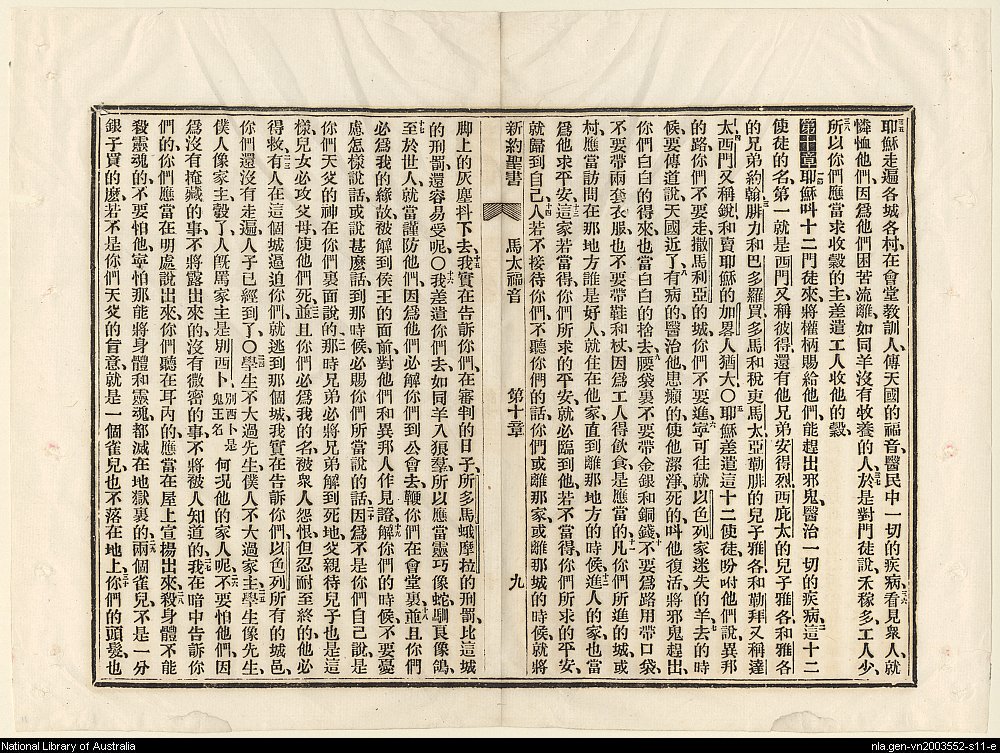 耶穌走遍各城各村、在會堂教訓人、傳天國的福音、醫民中一切的疾病、看見衆人、就
憐恤他們、因爲他們困苦流離、如同羊沒有牧養的人、於是對門徒說、禾稼多、工人少、
所以你們應當求收穀的主、差遣工人收他的穀、
第十章 耶穌叫十二門徒來、將權柄賜給他們、能趕出邪鬼、醫治一切的疾病、這十二
使徒的名、第一就是西門又稱彼得、還有他兄弟安得烈、西庇太的兒子雅各、和雅各
的兄弟約翰、腓力和巴多羅買、多馬和稅吏馬太、亞勒腓的兒子雅各、和勒拜又稱達
太、西門又稱銳、和賣耶穌的加畧人猶大、〇耶穌差遣這十二使徒、吩咐他們說、異邦
的路、你們不要走、撒馬利亞的城、你們不要進、寧可往就以色列家迷失的羊去、去的時
候、要傳道說、天國近了、有病的醫治他、患癩的使他潔淨、死的叫他復活、將邪鬼趕出、
你們白白的得來、也當白白的捨去、腰袋裏不要帶金銀和銅錢、不要爲路用帶口袋、
不要帶兩套衣服、也不要帶鞋和杖、因爲工人得飲食、是應當的、凡你們所進的城或
村、應當訪問在那地方誰是好人、就住在他家、直到離那地方的時候、進人的家、也當
爲他求平安、這家若當得你們所求的平安、就必臨到他、若不當得、你們所求的平安、
就歸到自己、人若不接待你們、不聽你們的話、你們或離那家、或離那城的時候、就將
新約聖書 馬太福音 第十章 九
脚上的灰塵抖下去、我實在告訴你們、在審判的日子、所多馬蛾摩拉的刑罰、比這城
的刑罰、還容易受呢、〇我差遣你們去、如同羊入狼羣、所以應當靈巧像蛇、馴良像鴿、
至於世人、就當謹防他們、因爲他們必解你們到公會去、鞭你們在會堂裏、並且你們
必爲我的緣故、被解到侯王的面前、對他們和異邦人作見證、解你們的時候、不要憂
慮怎樣說話、或說甚麽話、到那時候、必賜你們所當說的話、因爲不是你們自己說、是
你們天父的神、在你們裏面說的、那時兄弟必將兄弟解到死地、父親待兒子也是這
樣、兒女必攻父母、使他們死、並且你們必爲我的名、被衆人怨恨、但忍耐至終的、他必
得救、有人在這個城逼迫你們、就逃到那個城、我實在告訴你們、以色列所有的城邑、
你們還沒有走遍、人子已經到了、〇學生不大過先生、僕人不大過家主、學生像先生、
僕人像家主彀了、人旣罵家主是別西卜、別西卜是鬼王名 何況他的家人呢、不要怕他們、因
爲沒有掩藏的事、不將露出來的、沒有微密的事、不將被人知道的、我在暗中告訴你
們的、你們應當在明處說出來、你們聽在耳內的、應當在屋上宣揚出來、殺身體不能
殺靈魂的、不要怕他、寧怕那能將身體和靈魂、都滅在地獄裏的、兩個雀兒、不是一分
銀子買的麽、若不是你們天父的旨意、就是一個雀兒、也不落在地上、你們的頭髮也
National Library of Australia
nla.gen-vn2003552-s11-e